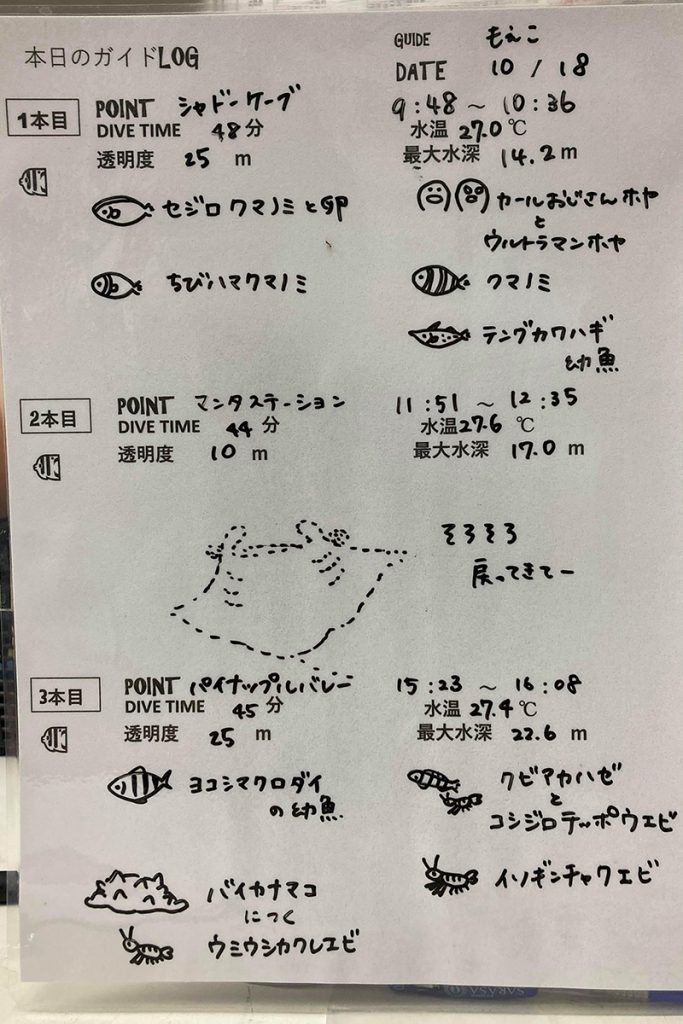 本日のガイドLOG
GUIDE もえこ
DATE 10 / 18
1本目
POINT シャドーケーブ
9:48 ~ 10:36
DIVE TIME 48分
水温 27.0℃
透明度 25 m
最大水深 14.2m
セジロクマノミと卵
カールおじさんホヤ
と
ウルトラマンホヤ
ちびハマクマノミ
クマノミ
テングカワハギ
幼魚
2本目
POINT マンタステーション
11:51 ~ 12:35
DIVE TIME 44 分
水温27.6 ℃
透明度 10 m
最大水深 17.0 m
そろそろ
戻ってきてー
3本目
POINT パイナップルバレー
15:23 ~ 16:08
DIVE TIME 45 分
水温 27.4℃
透明度 25 m
最大水深 22.6 m
ヨコシマクロダイ
の幼魚
クビアカハゼ
と
コシジロテッポウエビ
バイカナマコ
につく
ウミウシカクレエビ
イソギンチャクエビ